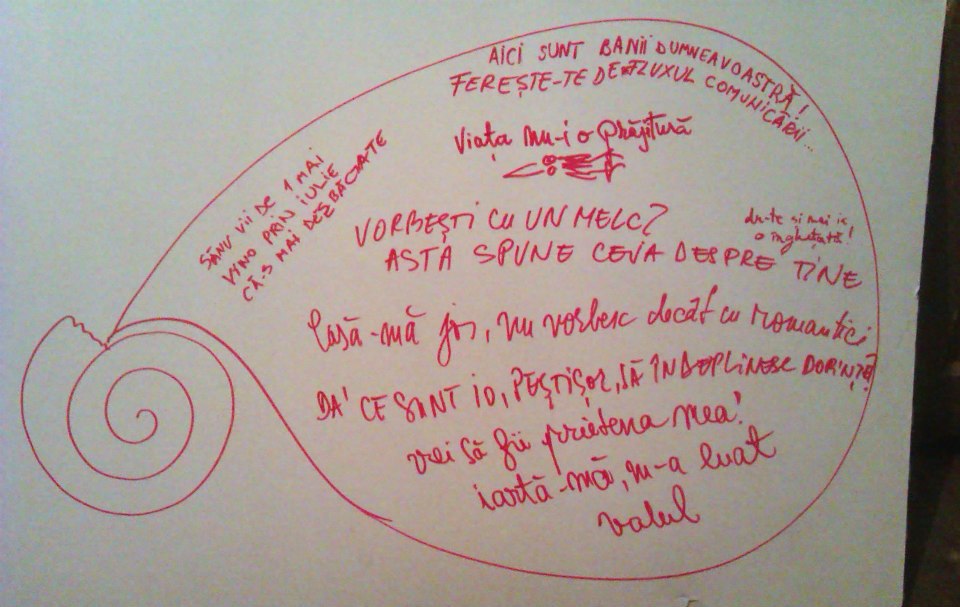 AICI SUNT BANII DUMNEAVOASTRĂ!
FEREȘTE-TE DE FLUXUL COMUNICĂRII...
Viața nu-i o prăjitură
SĂNU VII DE 1 MAI
VINO PRIN IULIE
CĂ-S MAI DEZBĂCATE
VORBEȘTI CU UN MELC?
ASTA SPUNE CEVA DESPRE TINE
du-te și mai ie
o înghețată!
Lasă-mă jos, nu vorbesc decât cu romantici
DA' CE SUNT IO, PEȘTIȘOR, SĂ ÎNDEPLINESC DORINȚE?
vrei să fii prietena mea?
iartă-mă, m-a luat
valul